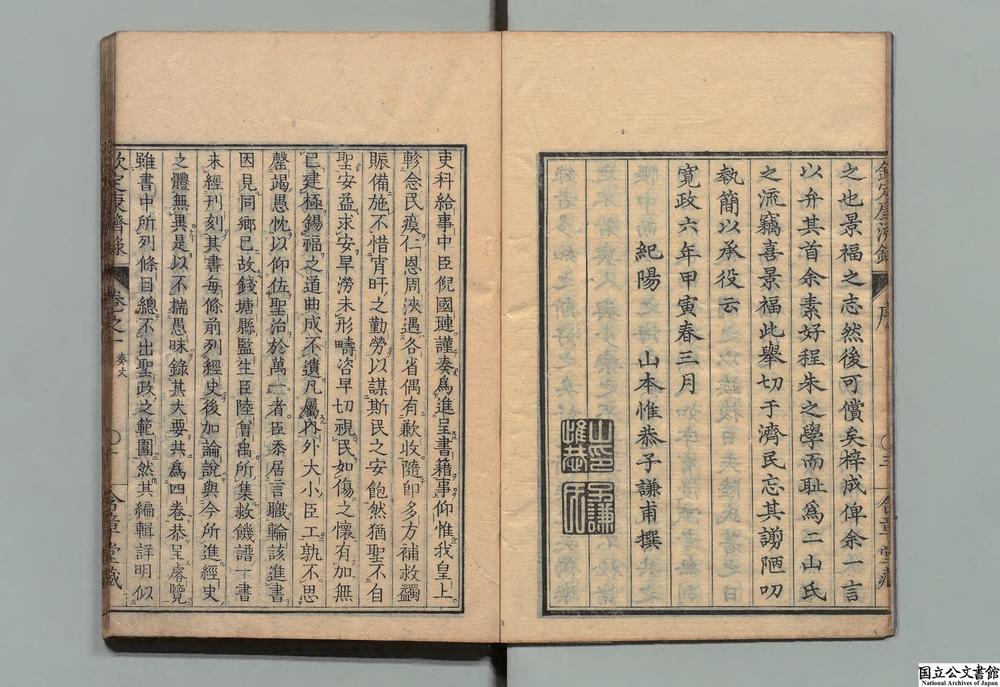 之也景福之志然後可償矣梓成俾余一言
以弁其首余素好程朱之學而耻爲二山氏
之流竊喜景福此舉切于濟民忘其謭陋叨
執簡以承役云
寛政六年甲寅春三月
紀陽 山本惟恭子謙甫撰
山本惟恭印
子謙
欽定康濟錄 序 〇三 含章堂藏
吏科給事中臣倪國璉謹奏爲進呈書籍事仰惟我皇上
軫念民瘼仁恩周浹遇各省偶有歉收隨即多方補救蠲
賑備施不惜宵旰之勤勞以謀斯民之安飽然猶聖不自
聖安益求安旱澇未形疇咨早切視民如傷之懷有加無
已建極錫福之道曲成不遺凡屬內外大小臣工孰不思
罄竭愚忱以仰佐聖治於萬一者臣忝居言職輪該進書
因見同鄉已故錢塘縣監生臣陸曾禹所集救饑譜一書
未經刊刻其書每條前列經史後加論說與今所進經史
之體無異是以不揣愚昧錄其大要共爲四卷恭呈睿覽
雖書中所列條目總不出聖政之範圍然其編輯詳明似
欽定康濟錄 卷之一 奏文 〇一 含章堂藏
国立公文書館
National Archives of Japan